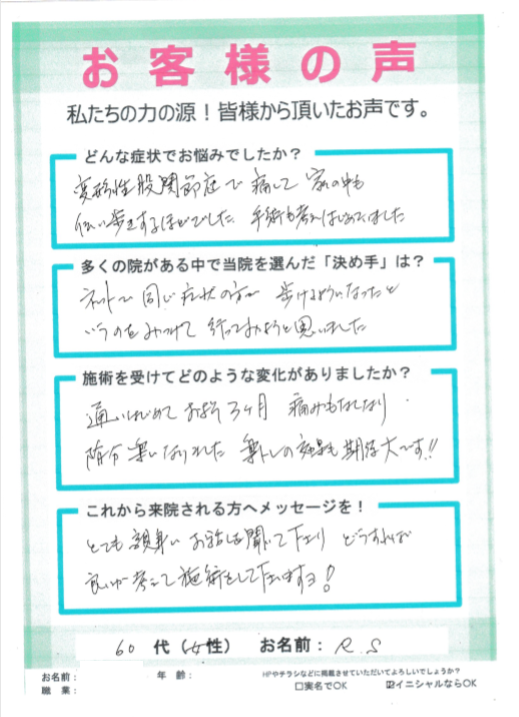 お客様の声
私たちの力の源！皆様から頂いたお声です。
どんな症状でお悩みでしたか？
変形性股関節症で痛くて家の中も
伝い歩きするほどでした。手術も考えはじめていました
多くの院がある中で当院を選んだ「決め手」は？
ネットで同じ症状の方が歩けるようになったと
いうのをみつけて行ってみようと思いました
施術を受けてどのような変化がありましたか？
通いはじめておよそ3ヶ月 痛みもなくなり
随分楽になりました 筋トレの効果も期待大です!!
これから来院される方へメッセージを！
とても親身にお話しを聞いて下さり どうすれば
良いか考えて施術をして下さいますヨ!
60代（女性） お名前：R.S
お名前：
年齢：
HPやチラシなどに掲載させていただいてよろしいでしょうか？
職業：
□実名でOK
☑イニシャルならOK